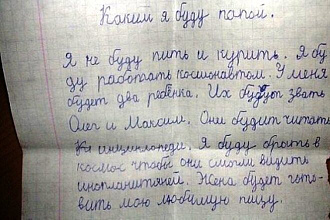 Каким я буду папой.
Я не буду пить и курить. Я бу
ду работать космонавтом. У меня
будет два ребёнка. Их будут звать
Олег и Максим. Они будит читать
энциклопеди. Я буду брать в
космос чтобы они смогли видить
инопланитяней. Жена будет гото-
вить мою любимую пиццу.